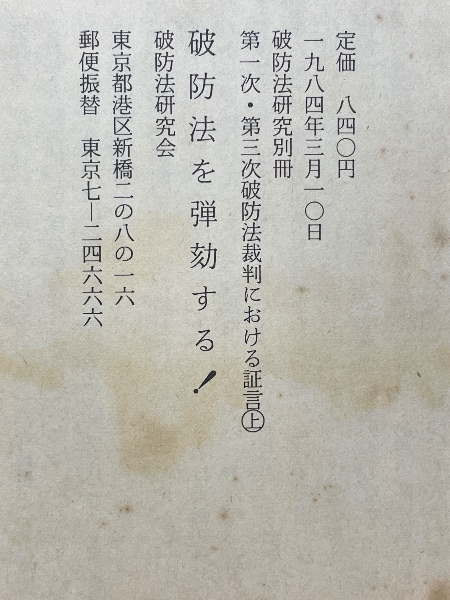 定価　八四〇円
一九八四年三月一〇日
破防法研究別冊
第一次・第三次破防法裁判における証言㊤
破防法を弾劾する！
破防法研究会
東京都港区新橋二の八の一六
郵便振替　東京七―二四六六六